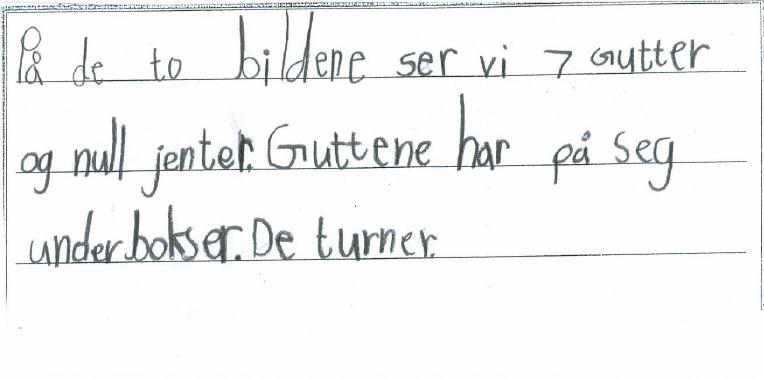 På de to bildene ser vi 7 Gutter
og null jenter. Guttene har på seg
underbokser. De turner.